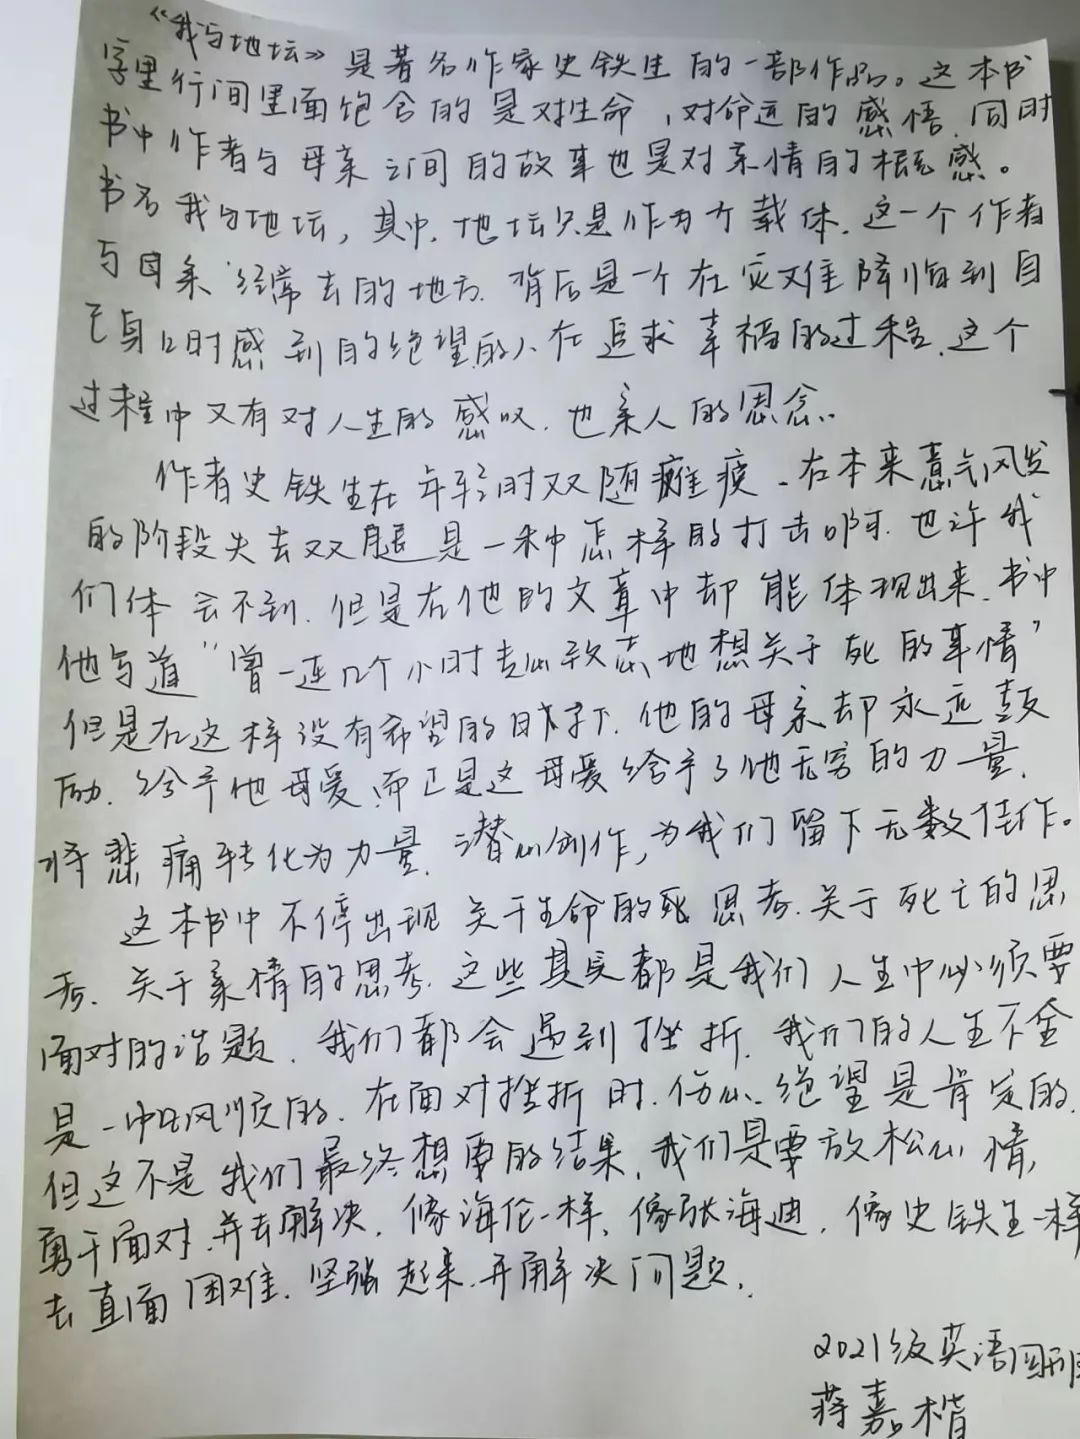 《我与地坛》是著名作家史铁生的一部作品。这本书
字里行间里面饱含的是对生命，对命运的感悟.同时
书中作者与母亲之间的故事也是对亲情的概感。
书名我与地坛，其中.地坛只是作为方载体.这一个作者
与母亲经常去的地方.背后是一个在灾难降临到自
己身上时感到的绝望的人在追求幸福的过程.这个
过程中又有对人生的感叹.也亲人的思念.
作者史铁生在年轻时双腿瘫痪.在本来意气风发
的阶段失去双腿是一种怎样的打击啊.也许我
们体会不到.但是在他的文章中却能体现出来.书中
他写道“曾一连几个小时专心致志地想关于死的事情”
但是在这样没有希望的日子下.他的母亲却永远鼓
励.给予他母爱.而正是这母爱给予了他无穷的力量.
将悲痛转化为力量.潜心创作,为我们留下无数佳作。
这本书中不停出现关于生命的死思考.关于死亡的思
考.关于亲情的思考.这些其实都是我们人生中必须要
面对的话题.我们都会遇到挫折.我们的人生不全
是一帆风顺的.在面对挫折时.伤心.绝望是肯定的.
但这不是我们最终想要的结果.我们是要放松心情,
勇于面对.并去解决.像海伦一样、像张海迪.像史铁生一样
去直面困难.坚强起来.并解决问题.
2021级英语四班
蒋嘉楷